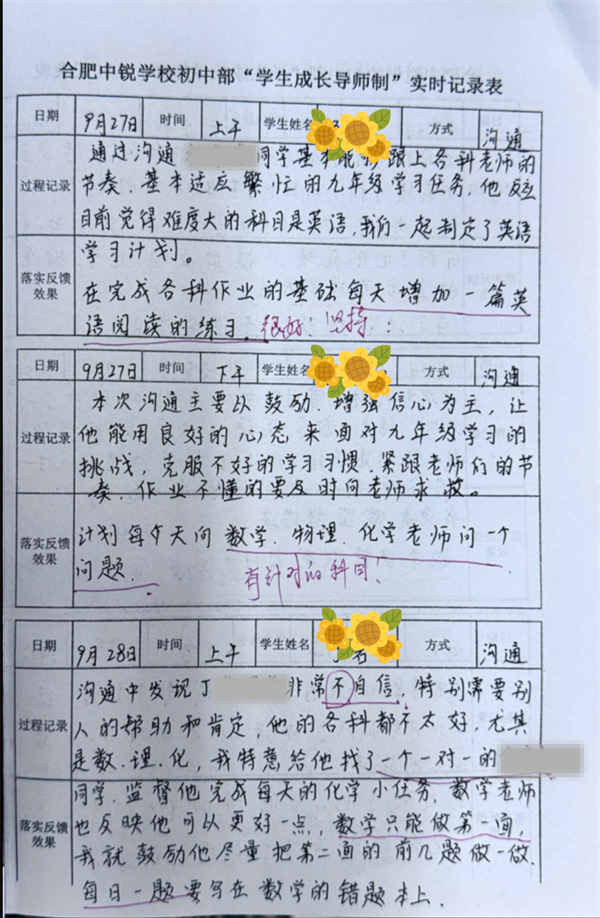 合肥中锐学校初中部“学生成长导师制”实时记录表
日期 9月27日 时间 上午 学生姓名 方式 沟通
过程记录
通过沟通 同学基本能够跟上各科老师的
节奏。基本适应繁忙的九年级学习任务。他反应
目前觉得难度大的科目是英语,我们一起制定了英语
学习计划。
落实反馈效果
在完成各科作业的基础每天增加一篇英
语阅读的练习。很好!坚持!
日期 9月27日 时间 下午 学生姓名 方式 沟通
过程记录
本次沟通主要以鼓励.增强信心为主,让
他能用良好的心态来面对九年级学习的
挑战,克服不好的学习习惯.紧跟老师们的节
奏.作业不懂的要及时向老师求救。
落实反馈效果
计划每个天向数学.物理.化学老师问一个
问题.
有针对的科目.
日期 9月28日 时间 上午 学生姓名 方式 沟通
过程记录
沟通中发现丁 非常不自信,特别需要别
人的帮助和肯定,他的各科都不太好.尤其
是数.理.化,我特意给他找了一个一对一的
落实反馈效果
同学.监督他完成每天的化学小任务,数学老师
也反映他可以更好一点,数学只能做第一面,
我就鼓励他尽量把第二面的前几题做一做.
每日一题要写在数学的错题本上.